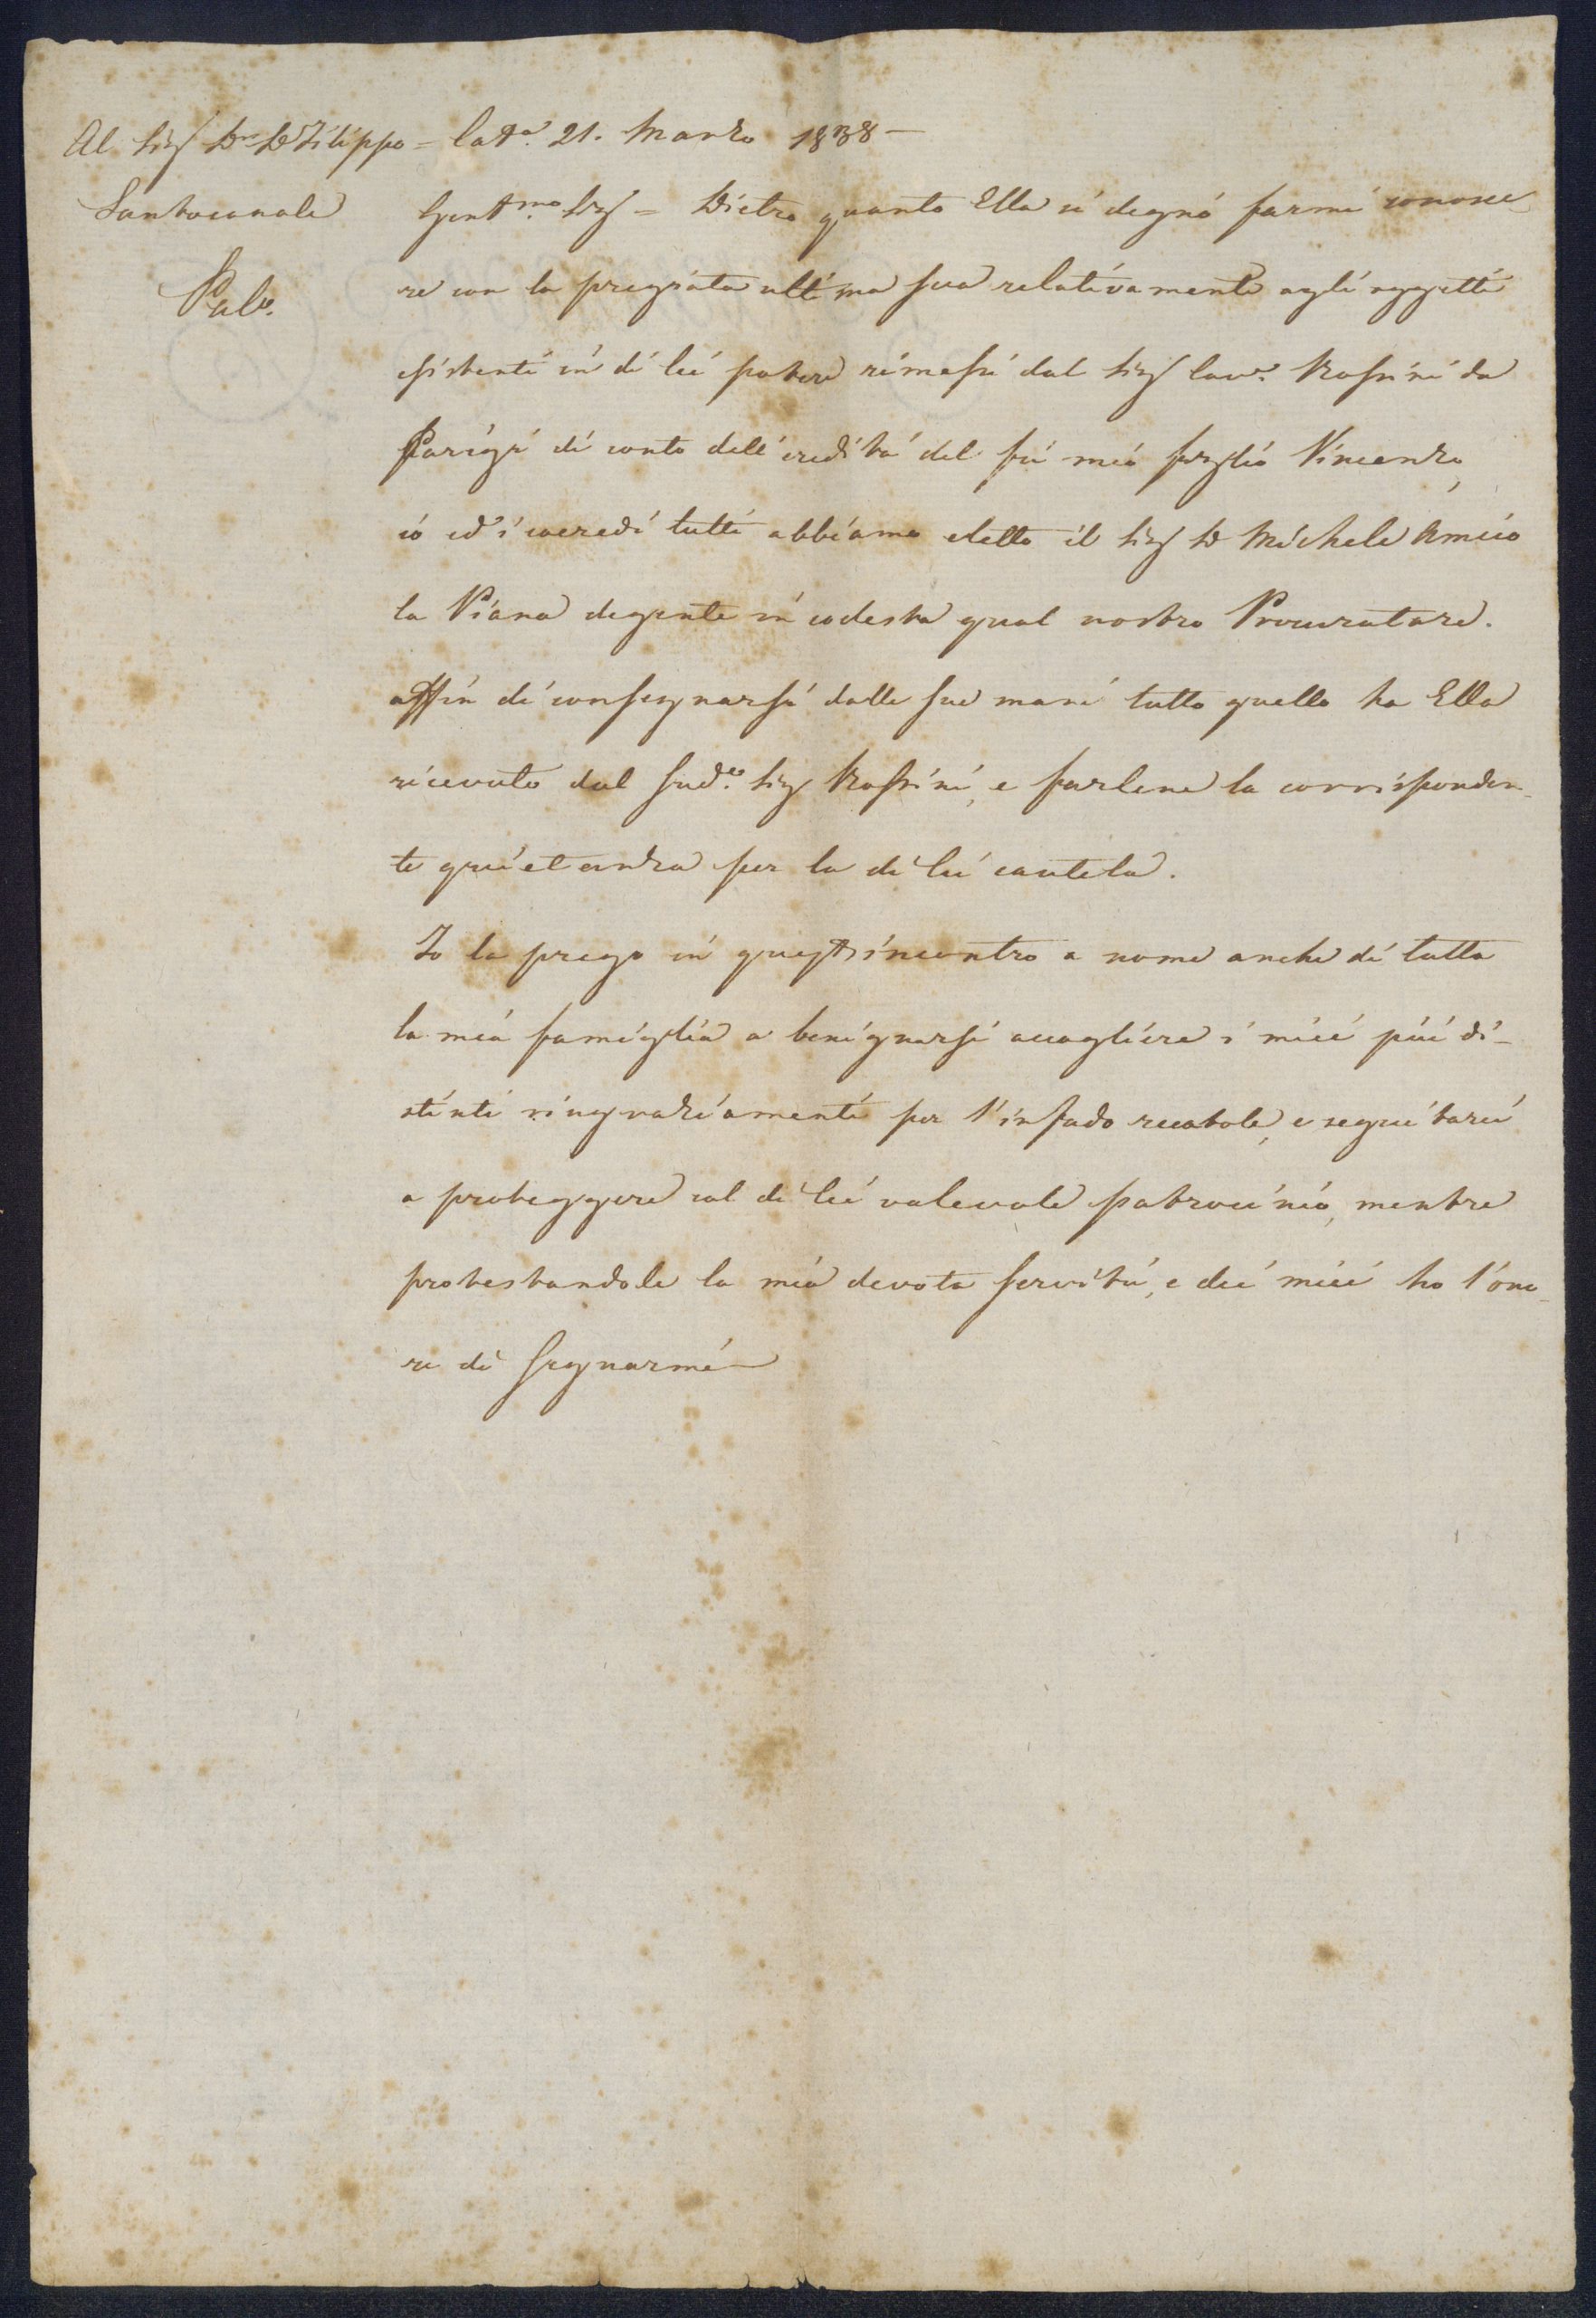 Al Sig.r B.ne D. Filippo = Cat.a 21. Marzo 1838 —
Santocanale
Pal.o
Gent.mo Sig.r = Dietro quanto Ella si degnò farmi conosce-
re con la pregiata ultima sua relativamente agli oggetti
esistenti in di lei potere rimessi dal Sig.r Cav.r Rossini da
Parigi di conto dell'eredità del fù mio figlio Vincenzo,
io ed i coeredi tutti abbiamo eletto il Sig.r D. Michele Amico
la Piana degente in codesta qual nostro Procuratore.
affin di consegnarsi dalle sue mani tutto quello ha Ella
ricevuto dal Sud.o Sig.r Rossini, e farlene la corrisponden-
te quietanza per la di lei cautela.
Io la prego in quest'incontro a nome anche di tutta
la mia famiglia a benignarsi accogliere i miei più di-
stinti ringraziamenti per l'infado recatole, e seguitarci
a proteggere col di lei valevole patrocinio, mentre
protestandole la mia devota servitù, e dei miei ho l'ono-
re di segnarmi